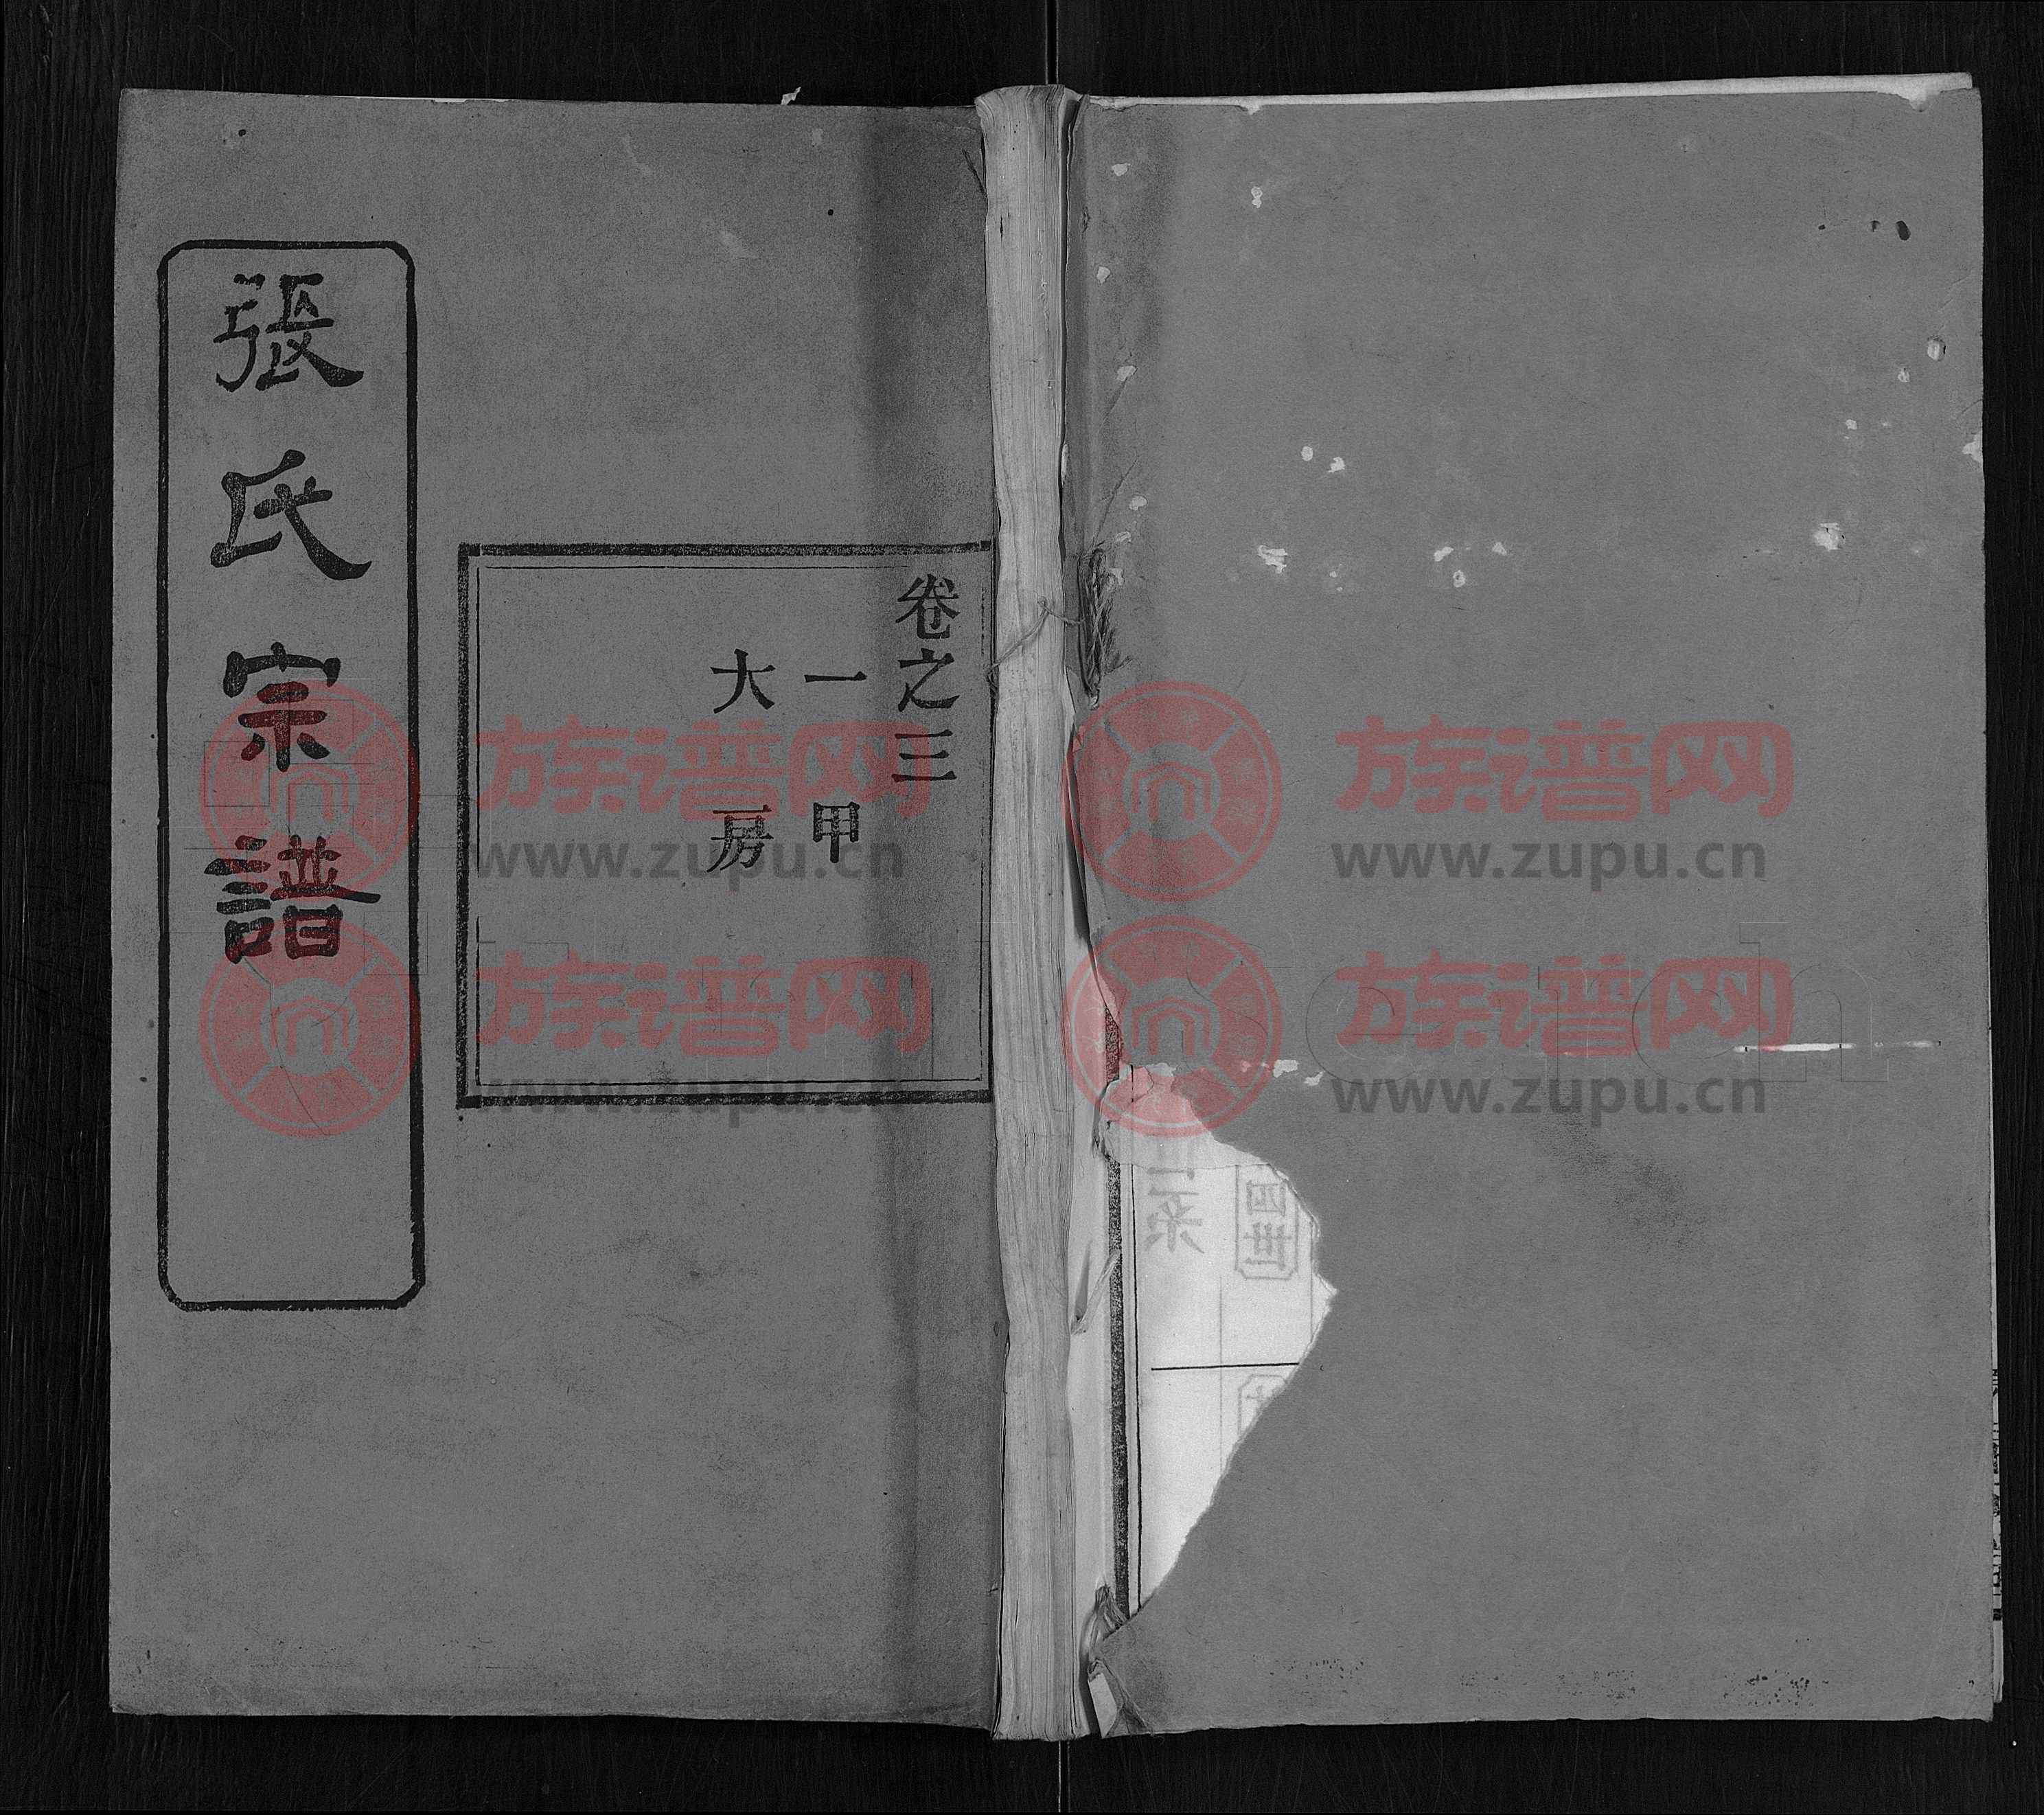 張氏宗譜
卷之三
一甲
大房
族谱网
www.zupu.cn
族谱网
www.zupu.cn
族谱网
www.zupu.cn
族谱网
www.zupu.cn